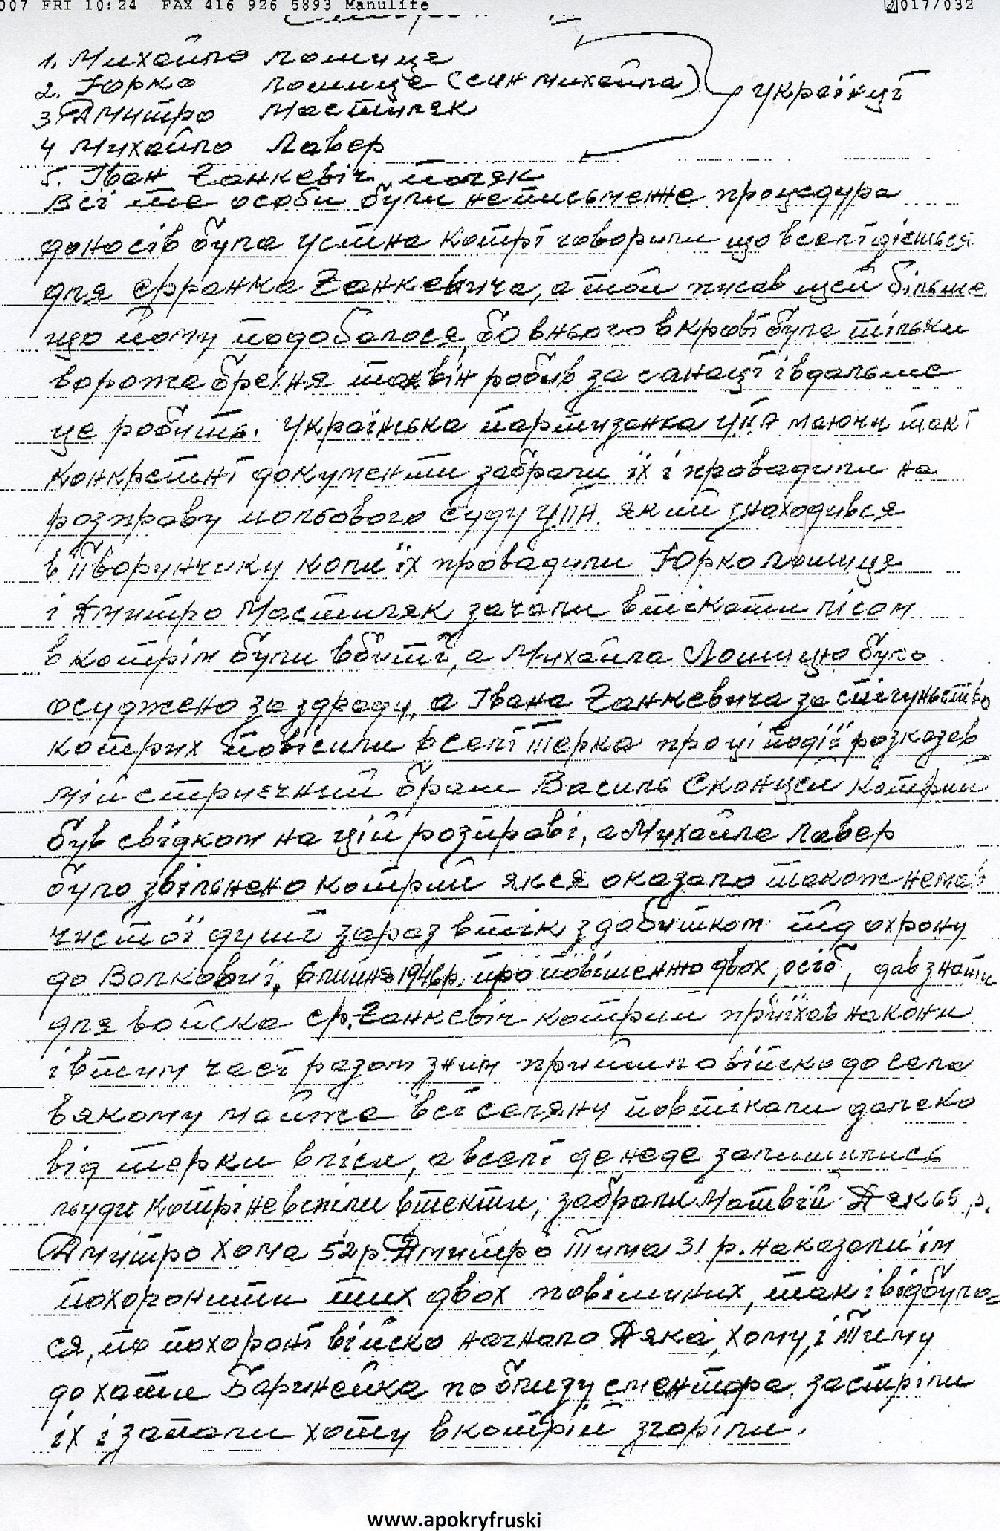 007 FRI 10:24 FAX 416 926 5893 Manulife 017/032
1. Михайло Лошиця
2. Юрко Лошиця (син Михайла)
3. Дмитро Мастиляк
українці
4 Михайло Лавер
5. Іван Ґанкевіч поляк
Всі те особи були неписьменне процедура
доносів була устна котрі говорили що вселі діється
для Франка Ґанкевича, а той писав щей більше
що йому подобалося, бо внього вкрові була тільки
ворожа брехня то він робив за санації івдальше
це робить. Українська партизанка УПА маючи такі
конкретні документи забрали їх і провадили на
розправу польового суду УПА який знаходився
в Творильчику коли їх провадили Юрко Лошиця
і Дмитро Мастиляк зачали втікати лісом
вкотрім були вбиті, а Михайла Лошицю було
осуджено за здраду, а Івана Ґанкевича за спігунство
котрих повісили вселі Терка проці події розказав
мій стриєчний брат Василь Сконцей котрий
був свідком на цій розправі, а Михайла Лавер
було звільнено котрий якся оказало також не мав
чистої душі зараз втік здобитком під охрону
до Волковиї, 6 липня 1946р. про повішенню двох, осіб, дав знати
для войска Фр. Ґанкевіч котрий приїхав накони
і втим часі разом зним прийшло війско до села
в якому майже всі селяну повтікали далеко
від Терки вліси, а вселі де неде залишились
льуди котрі невспіли втекти, забрали Матвій Дяк 65 р.
Дмитро Хома 52р. Дмитро Тима 31 р. наказали їм
похоронити тих двох повішиних, так івідбуло=
ся, по похороні війско начнало Дяка, Хому, і Тиму
до хати Баринейка поблизу сментара, застріли
їх і запали хату вкотрій згоріли.
www.apokryfruski